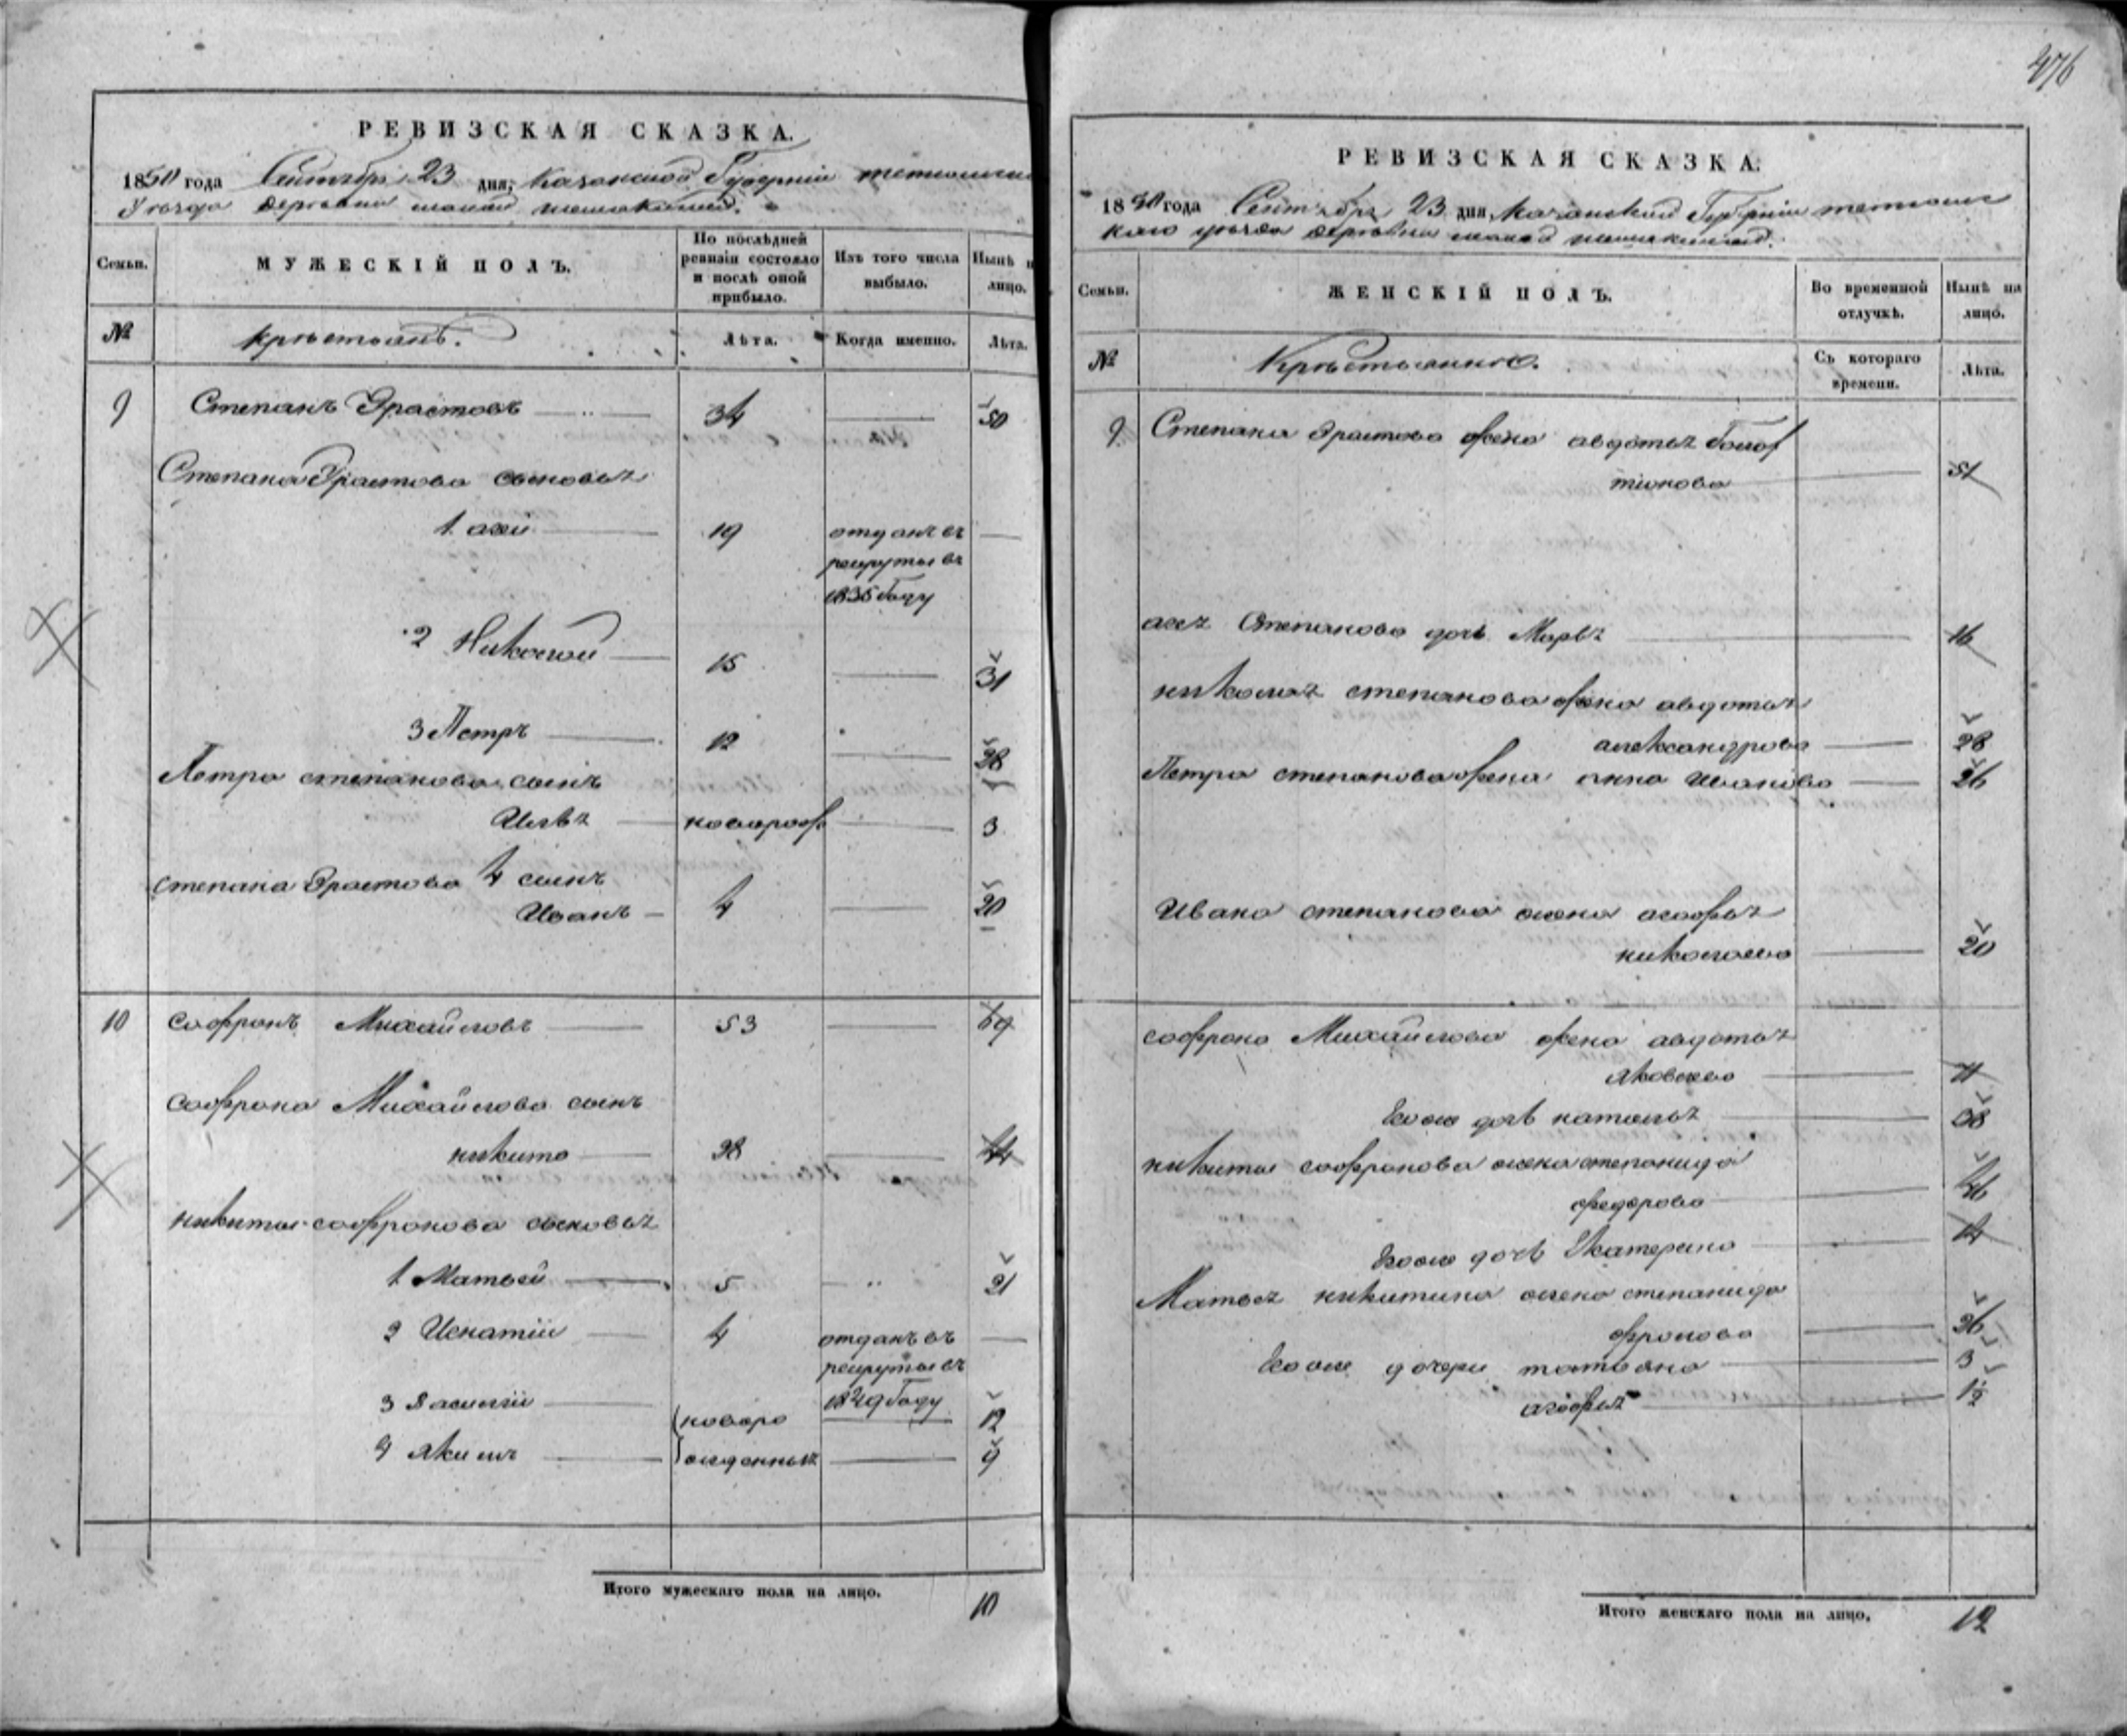 476
РЕВИЗСКАЯ СКАЗКА.
1850 года Сентября 23 дня, Казанской Губернии
Уезда деревни малой
Семьи. МУЖЕСКІЙ ПОЛЪ. По послѣдней ревизіи состояло и послѣ оной прибыло. Изъ того числа выбыло. Нынѣ н лицо.
№ крестьянъ. Лѣта. Когда именно. Лѣта.
9 Степанъ Эрастовъ 34 50
Степана Эрастова сыновья
1 19 отданъ въ
рекруты въ
1835 году
2 Николай 15 31
3 Петръ 12 28
Петра степанова сынъ
Илья новорож 3
степана Эрастова 4 сынъ
Иванъ 4 20
10 софронъ Михайловъ 53 69
софрона Михайлова сынъ
никита 28 44
никиты софронова сыновья
1 Матвей 5 21
2 Игнатіи 4 отданъ въ
рекруты въ
1849 году
3 Василіи новоро 12
4 Якимъ жденныя 9
Итого мужескаго пола на лицо. 10
РЕВИЗСКАЯ СКАЗКА.
1850 года Сентября 23 дня Казанской Губерніи
каго уезда деревни малой
Семьи. ЖЕНСКІЙ ПОЛЪ. Во временной отлучкѣ. Нынѣ на лицо.
№ Крестьянке. Съ котораго времени. Лѣта.
9 Степана Эрастова жена авдотья
51
Степанова дочь Марья 16
николая степанова жена авдотья
александрова 28
Петра степанова жена анна Иванова 26
Ивана степанова жена агафья
николаева 20
софрона Михайлова жена авдотья
яковлева 71
Его же дочь наталья 38
никиты софронова жена степанида
федорова 46
Его же дочь Екатерина 14
Матвея никитина жена степанида
фролова 26
Его же дочери татьяна 3
агафья 1½
Итого женскаго пола на лицо. 12